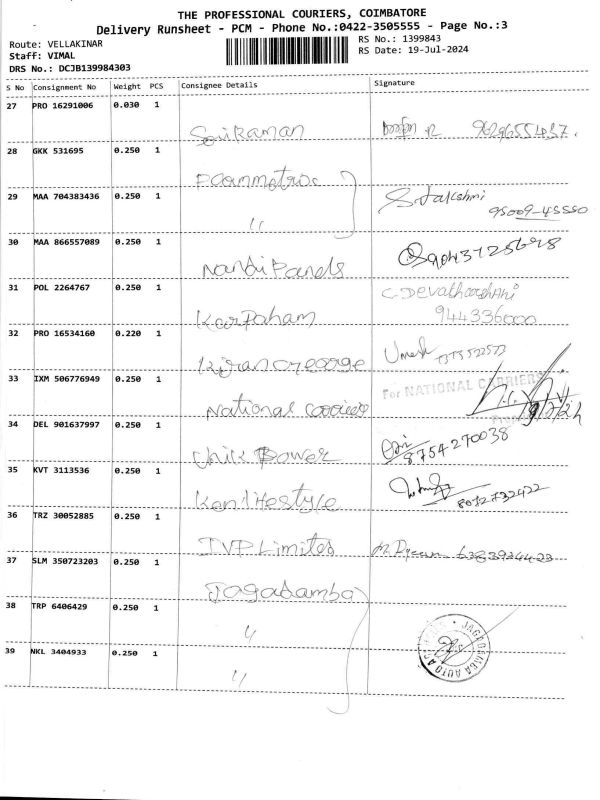 THE PROFESSIONAL COURIERS, COIMBATORE
Delivery Runsheet - PCM - Phone No.:0422-3505555 - Page No.:3
Route: VELLAKINAR
RS No.: 1399843
Staff: VIMAL
RS Date: 19-Jul-2024
DRS No.: DCJB139984303
S No Consignment No Weight PCS Consignee Details Signature
27 PRO 16291006 0.030 1 Saikaman
28 GKK 531695 0.250 1
29 MAA 704383436 0.250 1 " 95009-45550
30 MAA 866557089 0.250 1 Nandi Panels 9043725698
31 POL 2264767 0.250 1 Karpaham C. Devatharshani
944336000
32 PRO 16534160 0.220 1 Umesh
33 IXM 506776949 0.250 1 National Carriers For NATIONAL CARRIERS
34 DEL 901637997 0.250 1 8754270038
35 KVT 3113536 0.250 1 Kenlifestyle 8072732422
36 TRZ 30052885 0.250 1 IVP Limited
37 SLM 350723203 0.250 1 Jagadamba
38 TRP 6406429 0.250 1 "
39 NKL 3404933 0.250 1 "